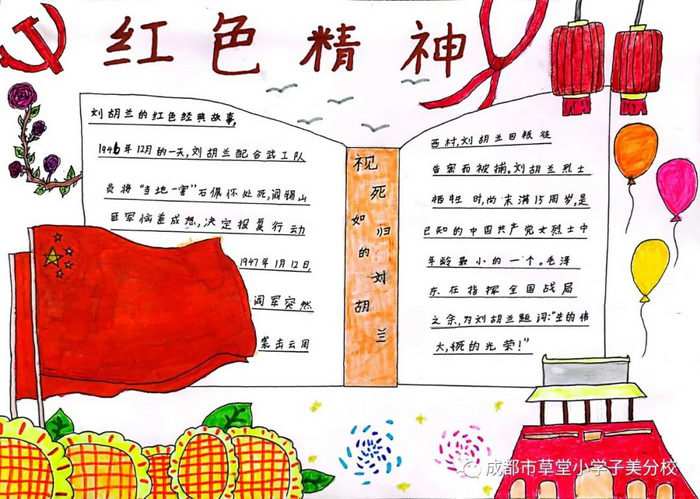 红色精神
刘胡兰的红色经典故事,
1946年12月的一天,刘胡兰配合武工队
员将"当地一害"石佩怀处死,阎锡山
匪军恼羞成怒,决定报复行动
1947年1月12日
阎军突然
袭击云周
视死如归的刘胡兰
西村,刘胡兰因叛徒
告密而被捕,刘胡兰烈士
牺牲时,尚未满15周岁,是
已知的中国共产党女烈士中
年龄最小的一个。毛泽
东在指挥全国战局
之余,为刘胡兰题词:"生的伟
大,死的光荣!"
成都市草堂小学子美分校